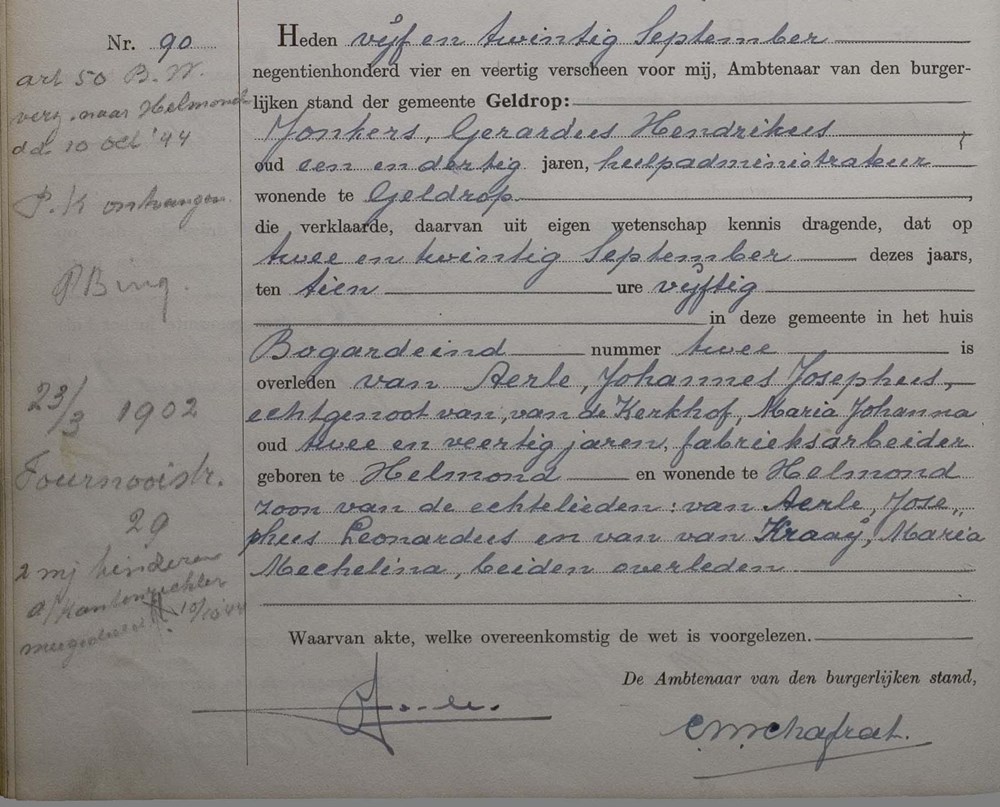 Nr. 90
art 50 B.W.
verz. naar Helmond
dd. 10 oct '44
P.K ontvangen
23/3 1902
29
2 mj kinderen
a/Kantonrechter
10/10 '44
Heden vijf en twintig September
negentienhonderd vier en veertig verscheen voor mij, Ambtenaar van den burger-
lijken stand der gemeente Geldrop:
Jonkers, Gerardus Hendrikus
oud een en dertig jaren, hulpadministrateur
wonende te Geldrop,
die verklaarde, daarvan uit eigen wetenschap kennis dragende, dat op
twee en twintig September dezes jaars,
ten tien ure vijftig
in deze gemeente in het huis
Bogardeind nummer twee is
overleden van Aerle, Johannes Josephus,
echtgenoot van, van de Kerkhof, Maria Johanna
oud twee en veertig jaren, fabrieksarbeider
geboren te Helmond en wonende te Helmond
zoon van de echtelieden: van Aerle, Jose„
phus Leonardus en van van Kraaÿ, Maria
Mechelina, beiden overleden.
Waarvan akte, welke overeenkomstig de wet is voorgelezen.
De Ambtenaar van den burgerlijken stand,